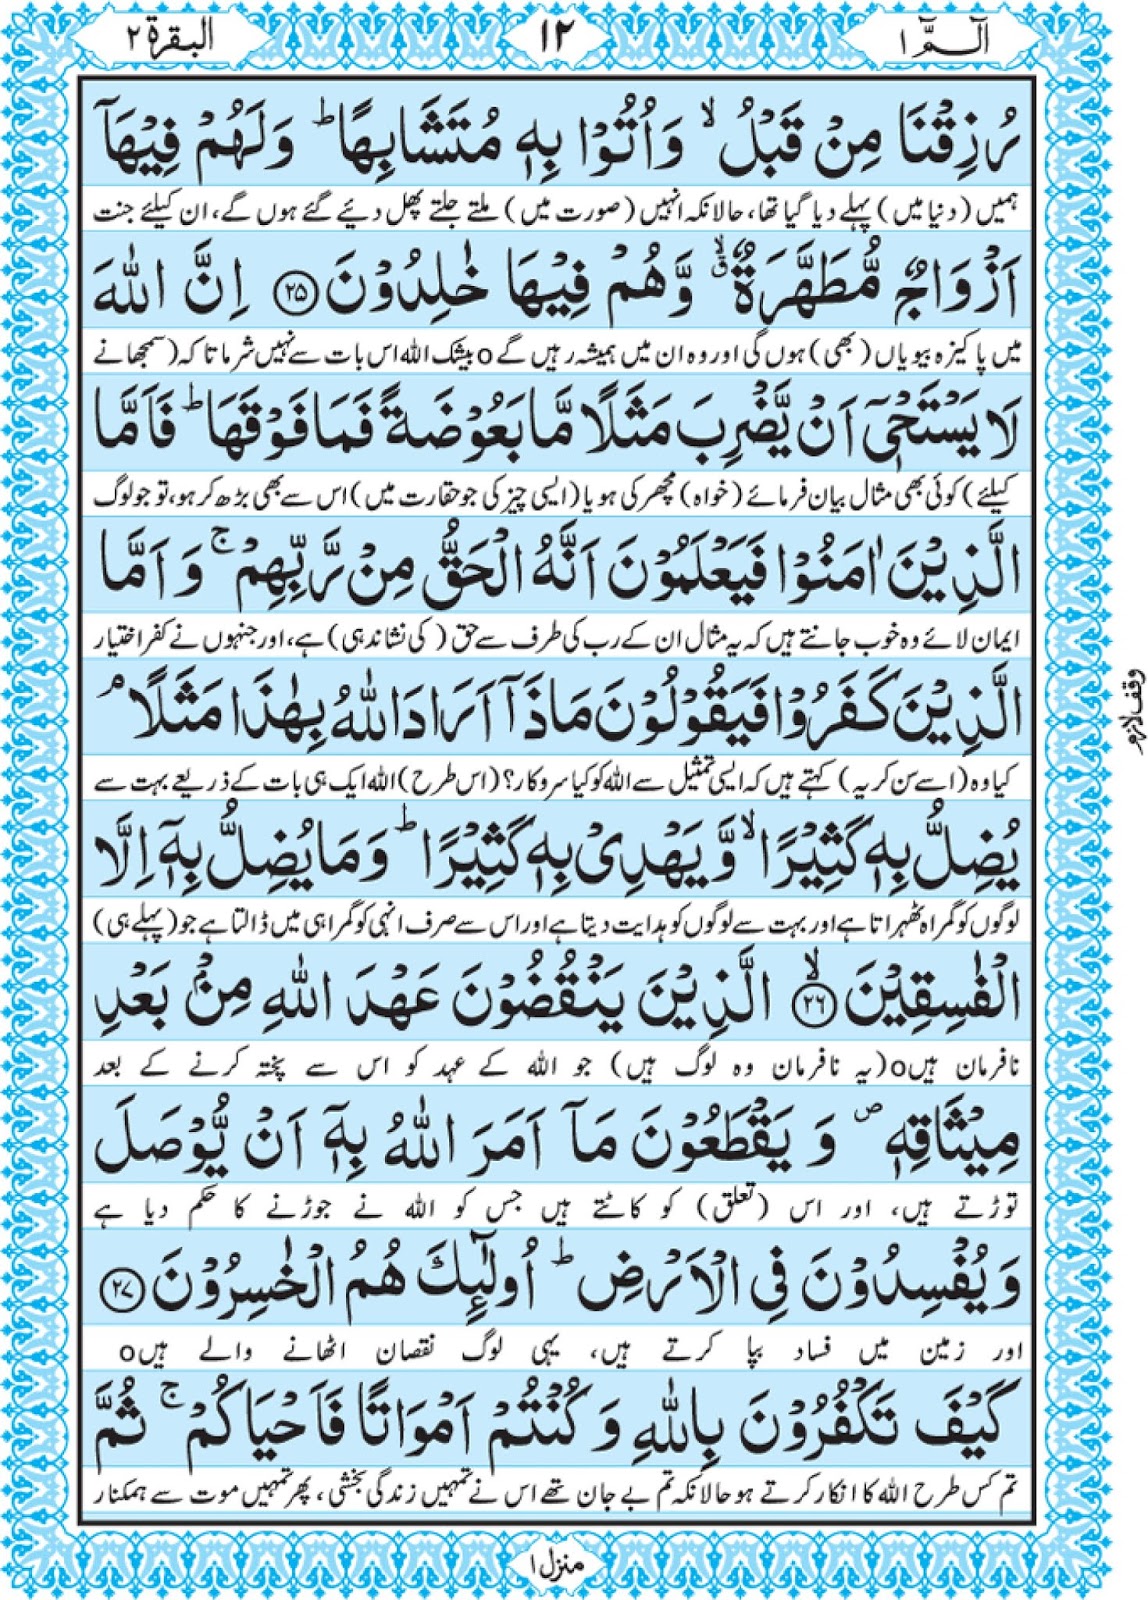 الٓمّٓ ۱
۱۲
البقرة ۲
رُزِقْنَا مِنْ قَبْلُ ۙ وَاُتُوْا بِهٖ مُتَشَابِهًا ؕ وَلَهُمْ فِيْهَآ
ہمیں (دنیا میں) پہلے دیا گیا تھا، حالانکہ انہیں (صورت میں) ملتے جلتے پھل دیئے گئے ہوں گے، ان کیلئے جنت
اَزْوَاجٌ مُّطَهَّرَةٌ ۙۗ وَّهُمْ فِيْهَا خٰلِدُوْنَ ﴿۲۵﴾ اِنَّ اللّٰهَ
میں پاکیزہ بیویاں (بھی) ہوں گی اور وہ ان میں ہمیشہ رہیں گے o بیشک اللہ اس بات سے نہیں شرماتا کہ (سمجھانے
لَا يَسْتَحْيٖٓ اَنْ يَّضْرِبَ مَثَلًا مَّا بَعُوْضَةً فَمَا فَوْقَهَا ؕ فَاَمَّا
کیلئے) کوئی بھی مثال بیان فرمائے (خواہ) مچھر کی ہو یا (ایسی چیز کی جو حقارت میں) اس سے بھی بڑھ کر ہو، تو جو لوگ
الَّذِيْنَ اٰمَنُوْا فَيَعْلَمُوْنَ اَنَّهُ الْحَقُّ مِنْ رَّبِّهِمْ ۚ وَاَمَّا
ایمان لائے وہ خوب جانتے ہیں کہ یہ مثال ان کے رب کی طرف سے حق (کی نشاندہی) ہے، اور جنہوں نے کفر اختیار
الَّذِيْنَ كَفَرُوْا فَيَقُوْلُوْنَ مَاذَآ اَرَادَ اللّٰهُ بِهٰذَا مَثَلًا ۘ
وقف لازم
کیا وہ (اسے سن کر یہ) کہتے ہیں کہ ایسی تمثیل سے اللہ کو کیا سروکار؟ (اس طرح) اللہ ایک ہی بات کے ذریعے بہت سے
يُضِلُّ بِهٖ كَثِيْرًا ۙ وَّيَهْدِىْ بِهٖ كَثِيْرًا ؕ وَمَا يُضِلُّ بِهٖٓ اِلَّا
لوگوں کو گمراہ ٹھہراتا ہے اور بہت سے لوگوں کو ہدایت دیتا ہے اور اس سے صرف انہی کو گمراہی میں ڈالتا ہے جو (پہلے ہی)
الْفٰسِقِيْنَ ۙ﴿۲۶﴾ الَّذِيْنَ يَنْقُضُوْنَ عَهْدَ اللّٰهِ مِنْۢ بَعْدِ
نافرمان ہیں o (یہ نافرمان وہ لوگ ہیں) جو اللہ کے عہد کو اس سے پختہ کرنے کے بعد
مِيْثَاقِهٖ ۪ وَيَقْطَعُوْنَ مَآ اَمَرَ اللّٰهُ بِهٖٓ اَنْ يُّوْصَلَ
توڑتے ہیں، اور اس (تعلق) کو کاٹتے ہیں جس کو اللہ نے جوڑنے کا حکم دیا ہے
وَيُفْسِدُوْنَ فِى الْاَرْضِ ؕ اُولٰٓئِكَ هُمُ الْخٰسِرُوْنَ ﴿۲۷﴾
اور زمین میں فساد بپا کرتے ہیں، یہی لوگ نقصان اٹھانے والے ہیں o
كَيْفَ تَكْفُرُوْنَ بِاللّٰهِ وَكُنْتُمْ اَمْوَاتًا فَاَحْيَاكُمْ ۚ ثُمَّ
تم کس طرح اللہ کا انکار کرتے ہو حالانکہ تم بے جان تھے اس نے تمہیں زندگی بخشی، پھر تمہیں موت سے ہمکنار
منزل ۱